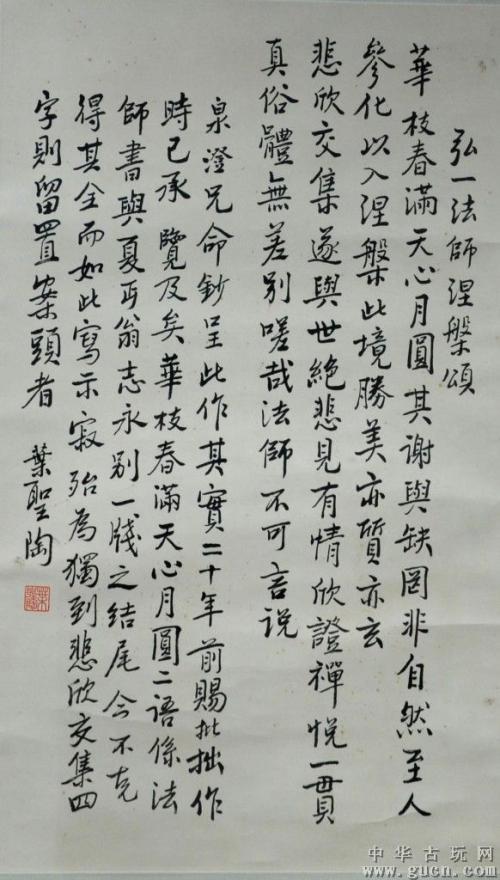 弘一法師涅槃頌
華枝春滿天心月圓其謝與缺罔非自然至人
參化以入涅槃此境勝美亦質亦玄
悲欣交集遂與世絶悲見有情欣證禪悅一貫
真俗體無差別嗟哉法師不可言説
泉澄兄命鈔呈此作其實二十年前賜批拙作
時已承覽及矣華枝春滿天心月圓二語係法
師書與夏丏翁志永别一牋之结尾今不克
得其全而如此寫示寂殆為獨到悲欣交集四
字則留置案頭者 葉聖陶
中华古玩网
www.gucn.com